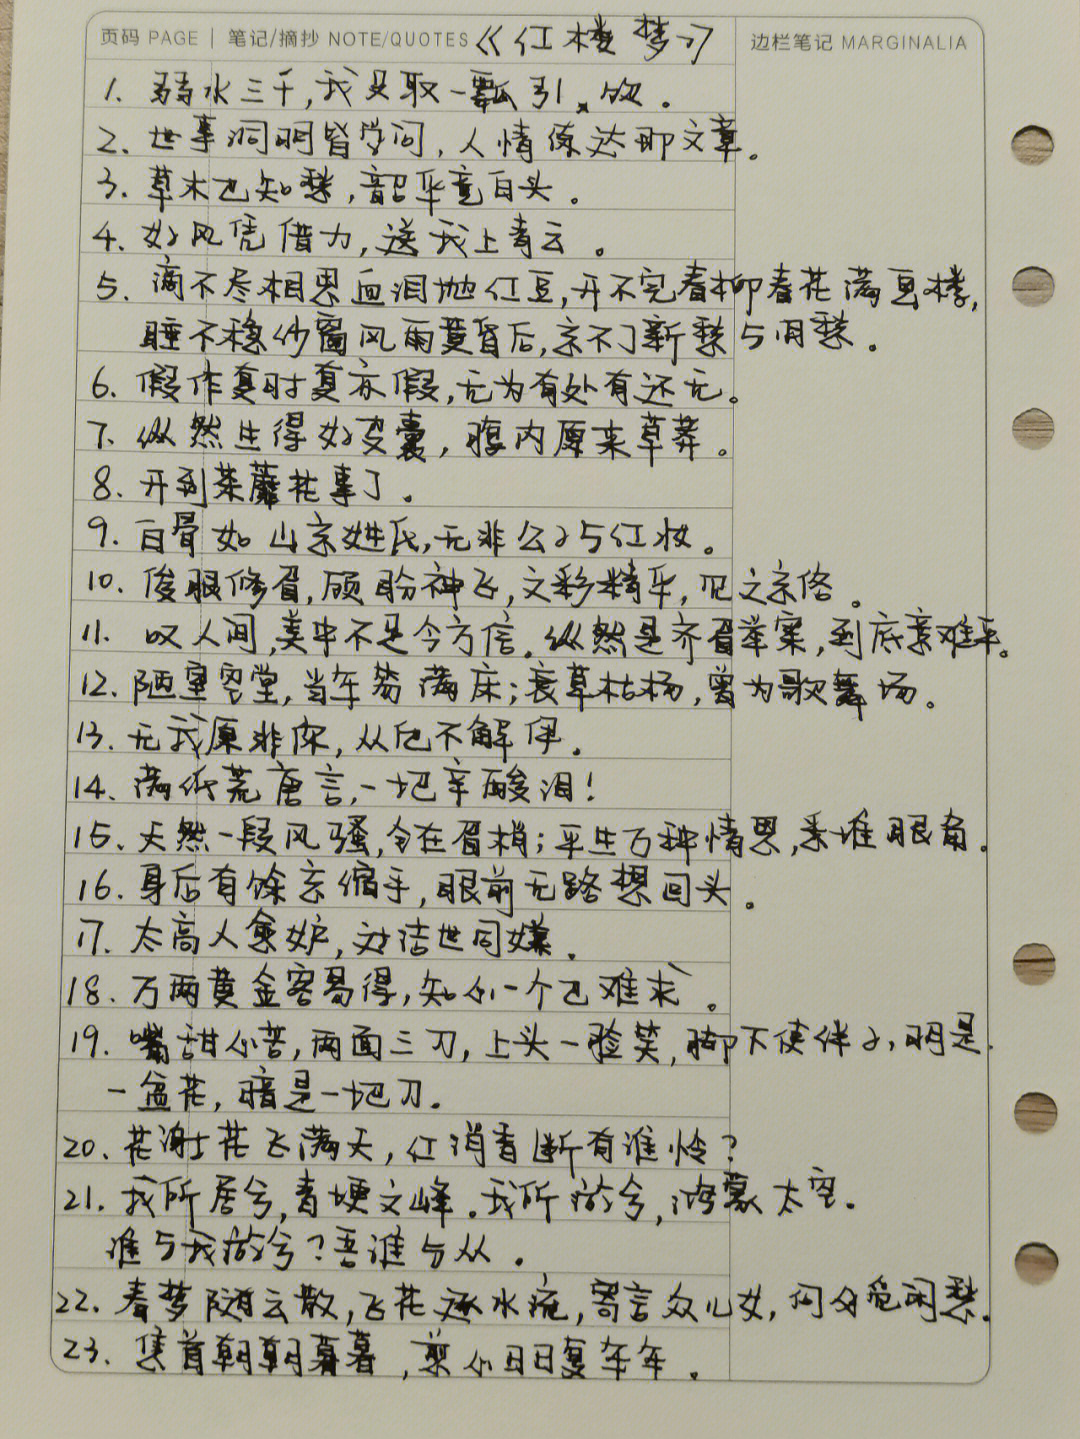 页码 PAGE | 笔记/摘抄 NOTE/QUOTES 《红楼梦》 边栏笔记 MARGINALIA
1. 弱水三千,我只取一瓢引。饮。
2. 世事洞明皆学问,人情练达即文章。
3. 草木也知愁,韶华竟白头。
4. 好风凭借力,送我上青云。
5. 滴不尽相思血泪抛红豆,开不完春柳春花满画楼,
睡不稳纱窗风雨黄昏后,忘不了新愁与旧愁。
6. 假作真时真亦假,无为有处有还无。
7. 纵然生得好皮囊,腹内原来草莽。
8. 开到荼蘼花事了。
9. 白骨如山忘姓氏,无非公子与红妆。
10. 俊眼修眉,顾盼神飞,文彩精华,见之忘俗。
11. 叹人间,美中不足今方信。纵然是齐眉举案,到底意难平。
12. 陋室空堂,当年笏满床;衰草枯杨,曾为歌舞场。
13. 无我原非你,从他不解伊。
14. 满纸荒唐言,一把辛酸泪!
15. 天然一段风骚,全在眉梢;平生万种情思,悉堆眼角。
16. 身后有馀忘缩手,眼前无路想回头。
17. 太高人愈妒,过洁世同嫌。
18. 万两黄金容易得,知心一个也难求。
19. 嘴甜心苦,两面三刀,上头一脸笑,脚下使绊子,明是
一盆花,暗是一把刀。
20. 花谢花飞满天,红消香断有谁怜?
21. 我所居兮,青埂之峰。我所游兮,鸿蒙太空。
谁与我游兮?吾谁与从。
22. 春梦随云散,飞花逐水流,寄言众儿女,何必觅闲愁。
23. 焦首朝朝暮暮,煎心日日复年年。